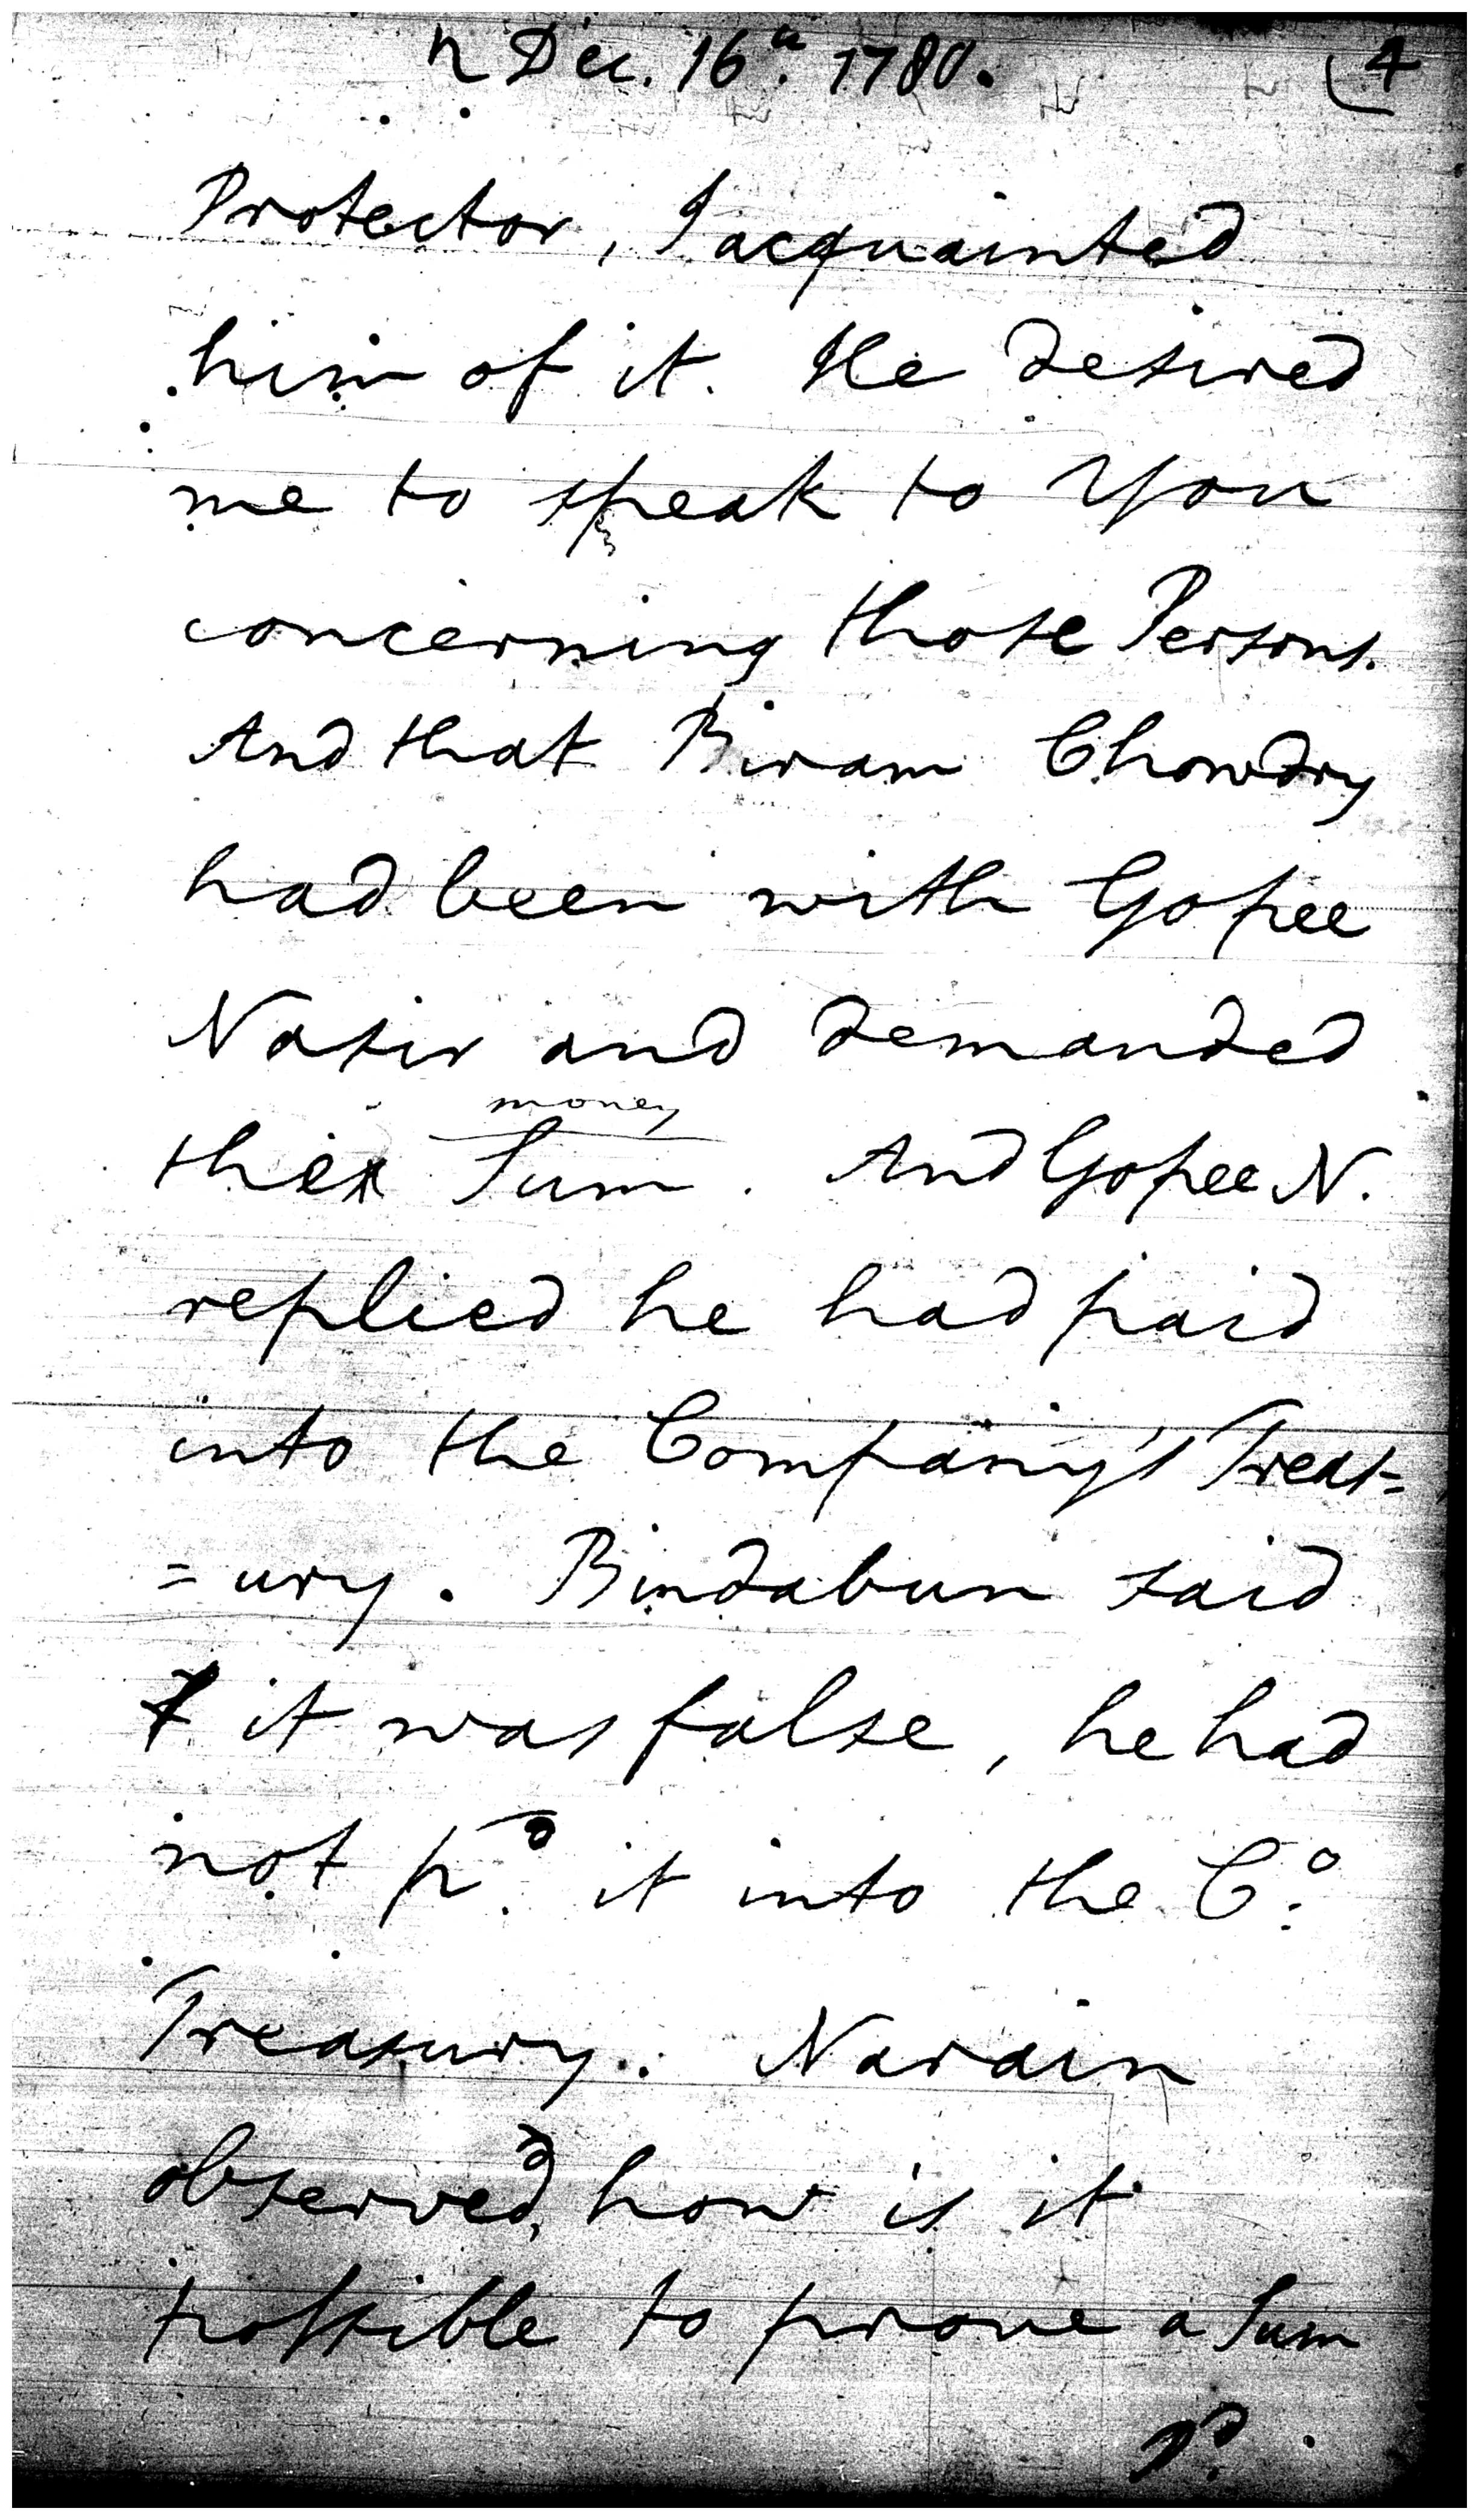 ♄ Dec. 16th. 1780. (4
Protector, I acquainted
him of it. He desired
me to speak to You
concerning those Persons.
And that Biram Chowdry
had been with Gopee
Nasir and demanded
money
their Sum. And Gopee N.
replied he had paid
into the Company's Treas=
=ury. Bindabun said
it was false, he had
not pd. it into the Co.
Treasury. Narain
observed, how is it
possible to prove a Sum
pd.